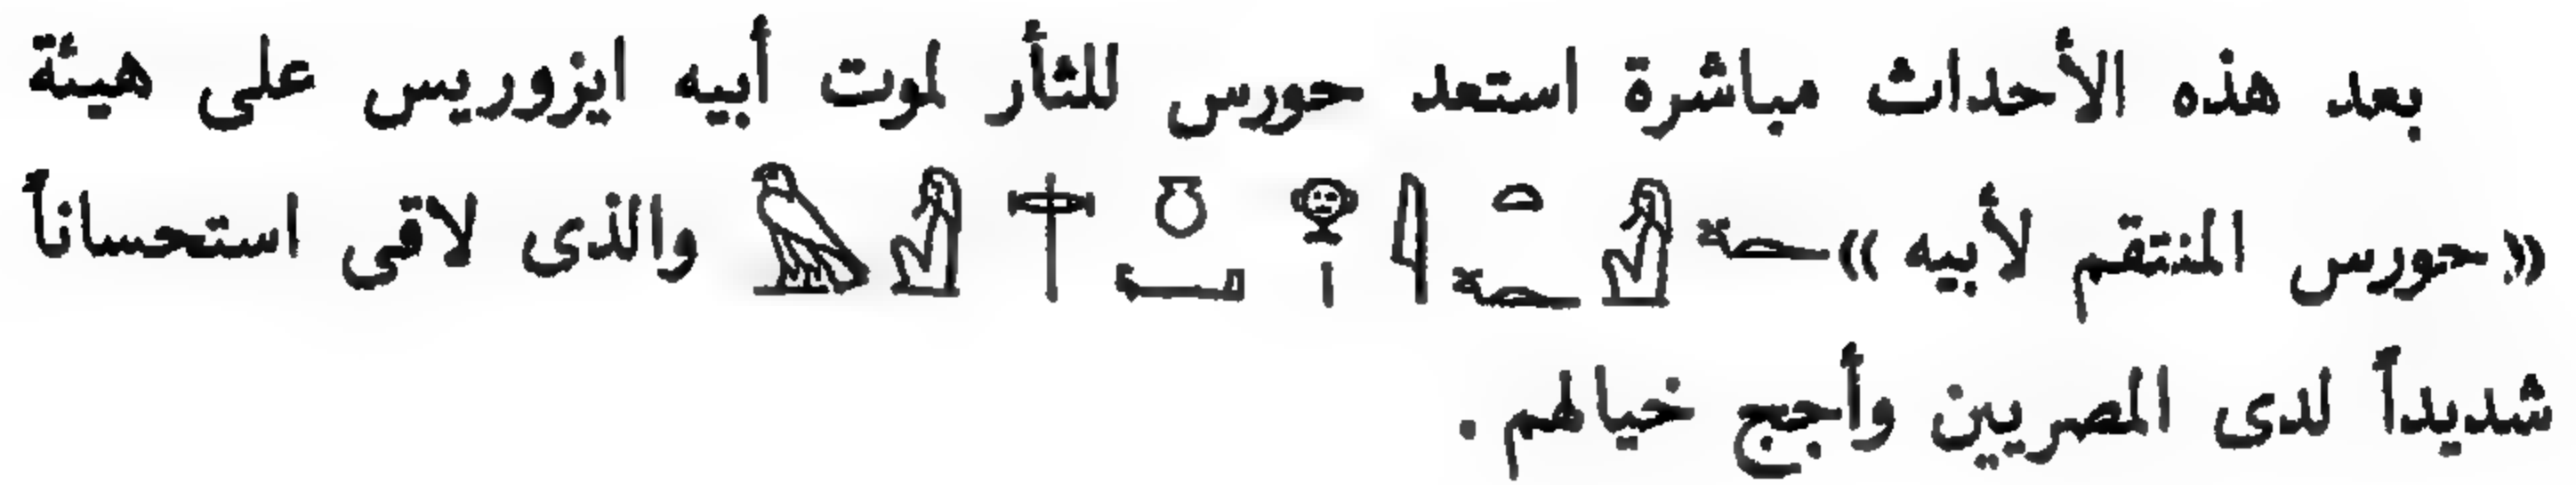 بعد هذه الأحداث مباشرة استعد حورس للثأر لموت أبيه ايزوريس على هيئة
«حورس المنتقم لأبيه» 𓆑𓀀𓏏𓆑𓇋𓁷𓏤𓏌𓂝𓀀𓅃 والذى لاقى استحساناً
شديداً لدى المصريين وأجج خيالهم .